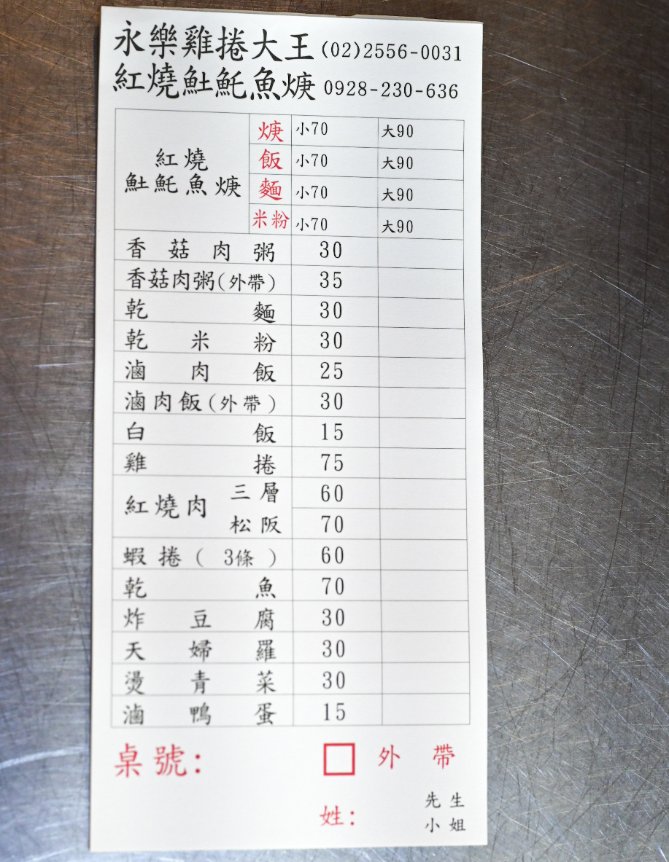 永樂雞捲大王 (02)2556-0031
紅燒魠魠魚焿 0928-230-636
紅燒
魠魠魚焿
焿 小70 大90
飯 小70 大90
麵 小70 大90
米粉 小70 大90
香菇肉粥 30
香菇肉粥(外帶) 35
乾麵 30
乾米粉 30
滷肉飯 25
滷肉飯(外帶) 30
白飯 15
雞捲 75
紅燒肉 三層 60
松阪 70
蝦捲(3條) 60
乾魚 70
炸豆腐 30
天婦羅 30
燙青菜 30
滷鴨蛋 15
桌號: □ 外帶
姓: 先生
小姐